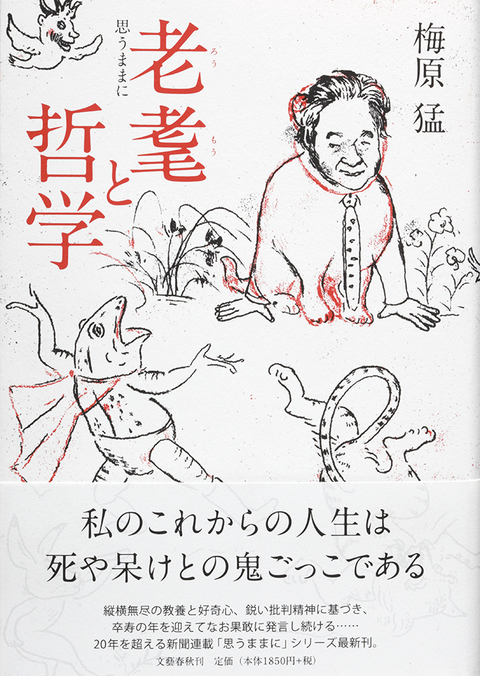 梅原 猛
思うままに
老耄
ろう もう
と
哲学
私のこれからの人生は
死や呆けとの鬼ごっこである
縦横無尽の教養と好奇心、鋭い批判精神に基づき、
卒寿の年を迎えてなお果敢に発言し続ける……
20年を超える新聞連載「思うままに」シリーズ最新刊。
文藝春秋刊 定価（本体1850円+税）